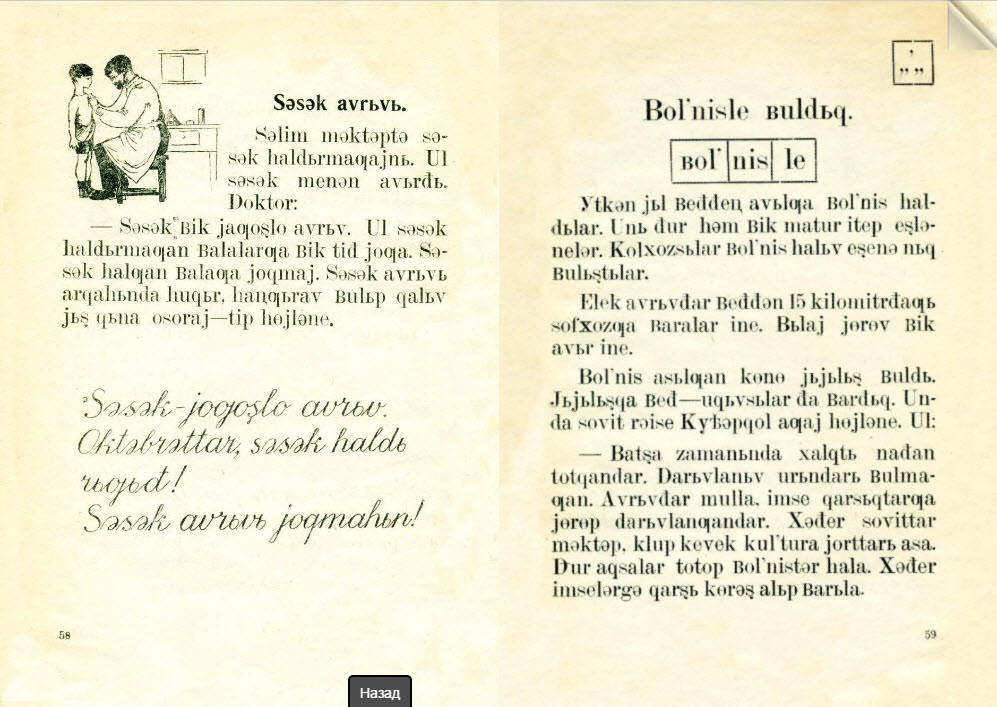 Səsək avrьvь.
Səlim məktəptə sə-
sək haldьrmaƣajnь. Ul
səsək menən avьrđь.
Doktor:
— Səsək ʙik jaƣoşlo avrьv. Ul səsək
haldьrmaƣan ʙalalarƣa ʙik tiđ joƣa. Sə-
sək halƣan ʙalaƣa joqmaj. Səsək avrьvь
arqahьnda huqьr, haꞑqьrav ʙulьp qalьv
jьş qьna osoraj—tip hөjləne.
Səsək-joƣoşlo avrьv.
Oktəbrəttar, səsək haldь
rьƣьđ!
Səsək avrьvь joqmahьn!
,
„ „
Bol'nisle ʙuldьq.
ʙol' nis le
Ytkən jьl ʙeđđeꞑ avьlƣa ʙol'nis hal-
dьlar. Unь đur həm ʙik matur itep eşlə-
nelər. Kolxozsьlar ʙol'nis halьv eşenə nьq
ʙulьştьlar.
Elek avrьvđar ʙeđđən 15 kilometrđaƣь
sofxozƣa ʙaralar ine. Bьlaj jөrөv ʙik
avьr ine.
Bol'nis asьlƣan kөnө jьjьlьş ʙuldь.
Jьjьlьşqa ʙeđ—uqьvsьlar đa ʙarđьq. Un-
da sovit rəise Kyƅəpqol aƣaj hөjləne. Ul:
— Batşa zamanьnda xalqtь nađan
totqandar. Darьvlanьv urьndarь ʙulma-
ƣan. Avrьvđar mulla, imse qarsьqtarƣa
jөrөp darьvlanƣandar. Xəđer sovittar
məktəp, klup kevek kul'tura jorttarь asa.
Đur aqsalar totop ʙol'nistər hala. Xəđer
imselərgə qarşь kөrəş alьp ʙarьla.
58
59
Назад